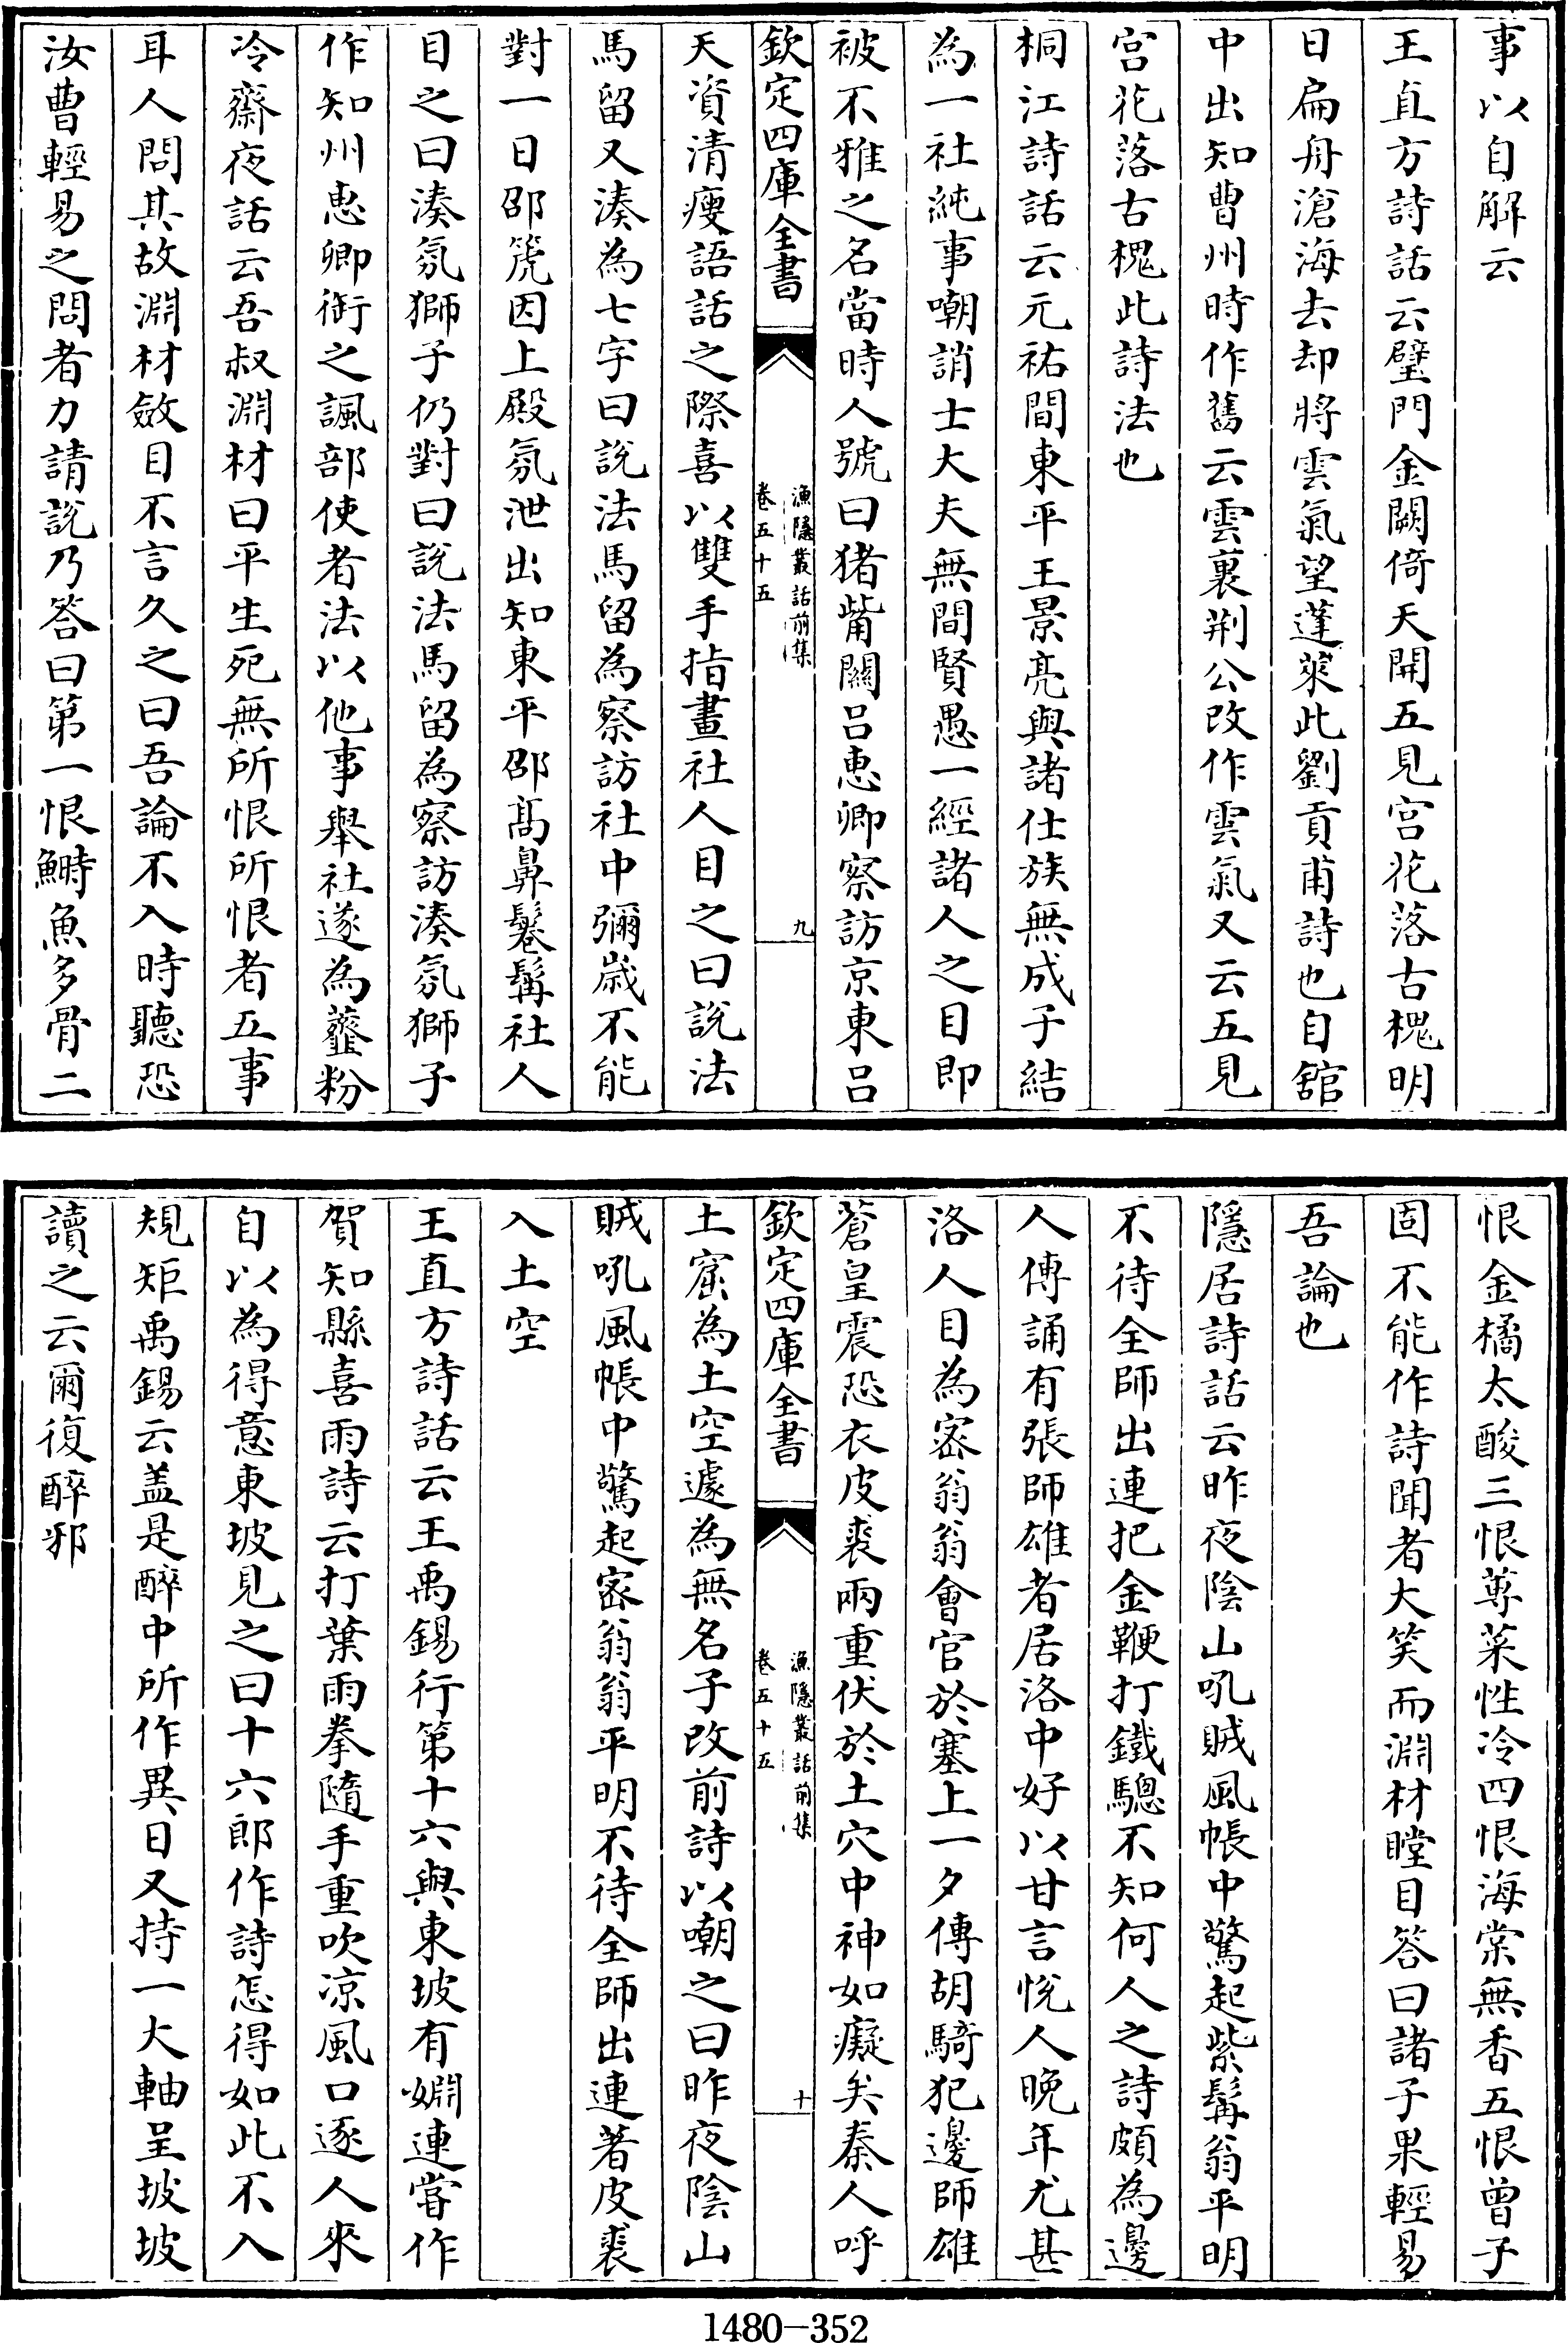 事以自解云
王直方詩話云璧門金闕倚天開五見宮花落古槐明
日扁舟滄海去却將雲氣望蓬萊此劉貢甫詩也自舘
中出知曹州時作舊云雲裏荆公改作雲氣又云五見
宮花落古槐此詩法也
桐江詩話云元祐間東平王景亮與諸仕族無成子結
為一社純事嘲誚士大夫無間賢愚一經諸人之目即
被不雅之名當時人號曰猪觜關吕惠卿察訪京東吕
欽定四庫全書
漁隱叢話前集
卷五十五
九
天資清瘦語話之際喜以雙手指畫社人目之曰說法
馬留又湊為七字曰說法馬留為察訪社中彌歲不能
對一日邵箎因上殿氛泄出知東平邵髙鼻鬈髯社人
目之曰湊氛獅子仍對曰說法馬留為察訪湊氛獅子
作知州惠卿銜之諷部使者法以他事舉社遂為虀粉
冷齋夜話云吾叔淵材曰平生死無所恨所恨者五事
耳人問其故淵材斂目不言久之曰吾論不入時聽恐
汝曹輕易之問者力請說乃答曰第一恨鰣魚多骨二
恨金橘太酸三恨蓴菜性冷四恨海棠無香五恨曾子
固不能作詩聞者大笑而淵材瞠目答曰諸子果輕易
吾論也
隱居詩話云昨夜陰山吼賊風帳中驚起紫髯翁平明
不待全師出連把金鞭打鐵驄不知何人之詩頗為邊
人傳誦有張師雄者居洛中好以甘言悅人晚年尤甚
洛人目為宻翁翁會官於塞上一夕傳胡騎犯邊師雄
蒼皇震恐衣皮裘兩重伏於土穴中神如癡矣秦人呼
欽定四庫全書
漁隱叢話前集
卷五十五
十
土窟為土空遽為無名子改前詩以嘲之曰昨夜陰山
賊吼風帳中驚起宻翁翁平明不待全師出連著皮裘
入土空
王直方詩話云王禹錫行第十六與東坡有婣連嘗作
賀知縣喜雨詩云打葉雨拳隨手重吹凉風口逐人來
自以為得意東坡見之曰十六郎作詩怎得如此不入
規矩禹錫云盖是醉中所作異日又持一大軸呈坡坡
讀之云爾復醉邪
1480—352